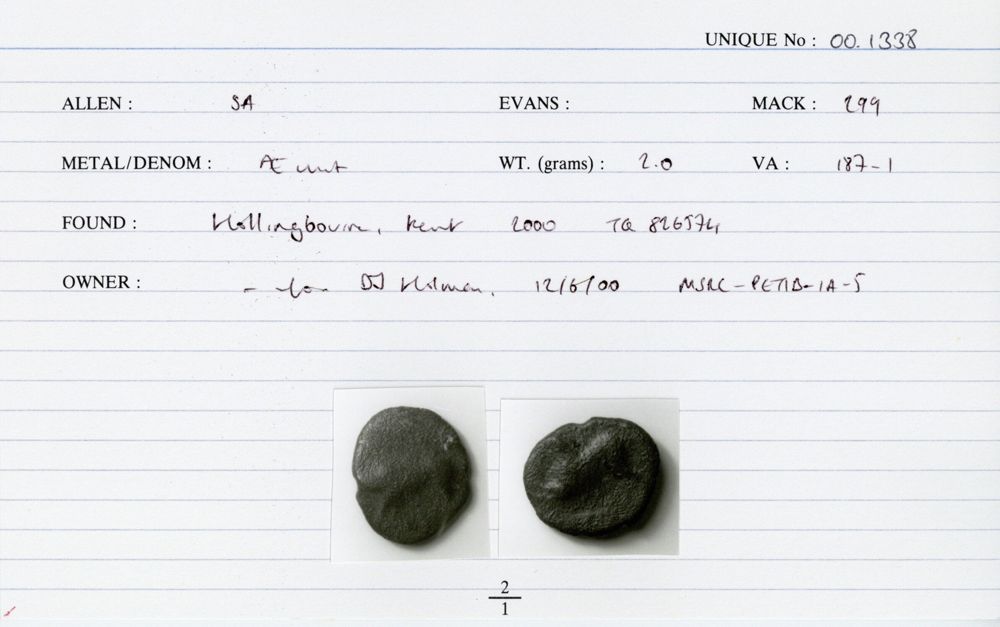 UNIQUE No : 00.1338
ALLEN : SA EVANS : MACK : 299
METAL/DENOM : Æ unit WT. (grams) : 2.0 VA : 187-1
FOUND : Hollingbourne, Kent 2000 TQ 826574
OWNER : DJ Holman, 12/6/00
2
1